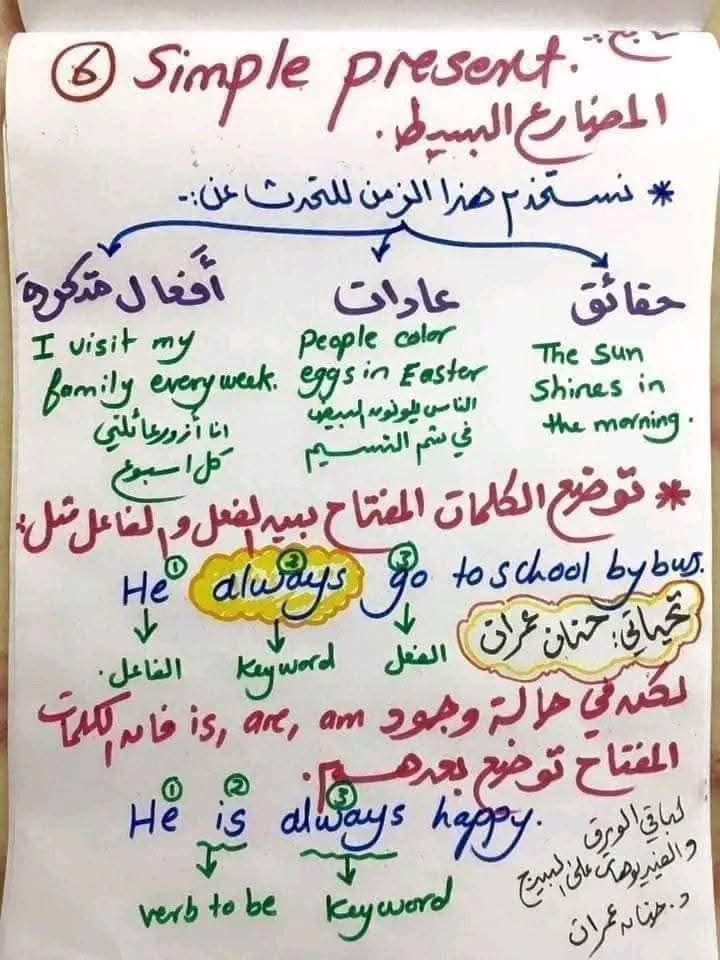 تابع:-
6 Simple present.
المضارع البسيط.
* نستخدم هذا الزمن للتحدث عن:-
حقائق
The sun
shines in
the morning.
عادات
people color
eggs in Easter
الناس يلونون البيض
في شم النسيم
أفعال متكررة
I visit my
family every week.
انا أزور عائلتي
كل اسبوع
* توضع الكلمات المفتاح بين الفعل والفاعل مثل:
1 2 3
He always go to school by bus.
الفاعل. keyword الفعل
تحياتي: حنان عمران
لكن في حالة وجود is, are, am فان الكلمات
المفتاح توضع بعدهم.
1 2 3
He is always happy.
verb to be keyword
لباقي الورق
والفيديوهات على البيدج
د. حنان عمران